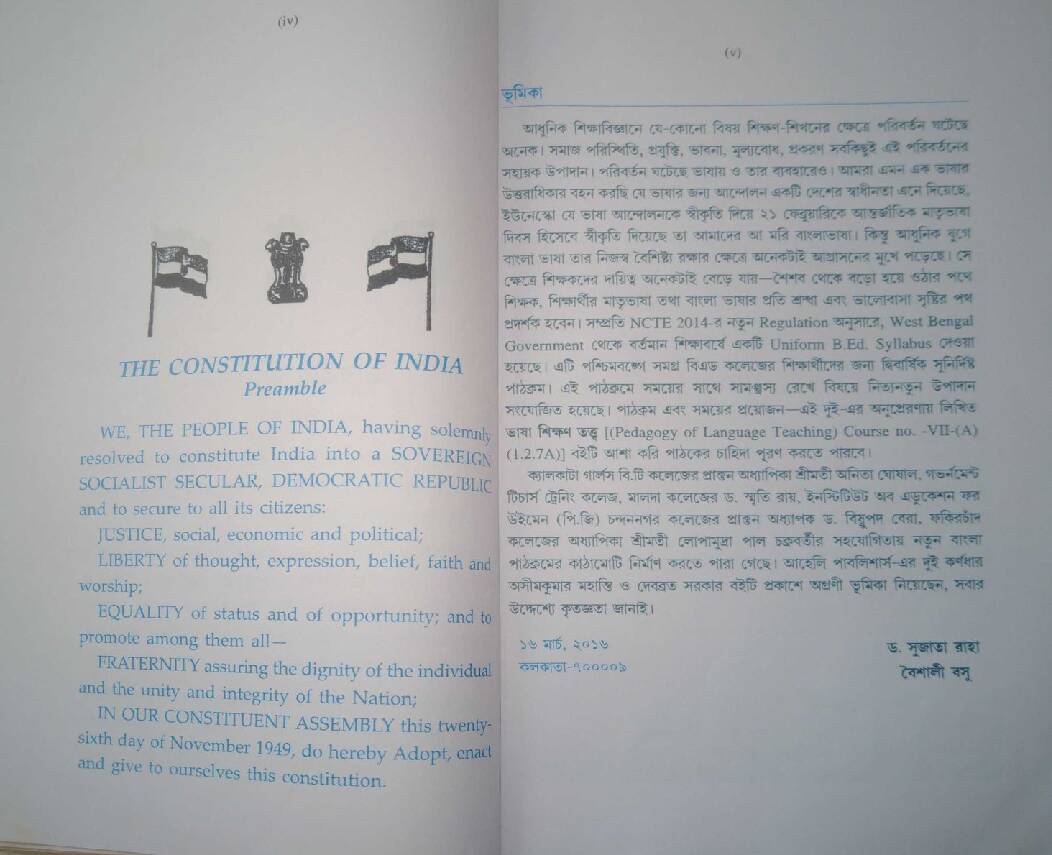 (iv)
THE CONSTITUTION OF INDIA
Preamble
WE, THE PEOPLE OF INDIA, having solemnly
resolved to constitute India into a SOVEREIGN
SOCIALIST SECULAR, DEMOCRATIC REPUBLIC
and to secure to all its citizens:
JUSTICE, social, economic and political;
LIBERTY of thought, expression, belief, faith and
worship;
EQUALITY of status and of opportunity; and to
promote among them all—
FRATERNITY assuring the dignity of the individual
and the unity and integrity of the Nation;
IN OUR CONSTITUENT ASSEMBLY this twenty-
sixth day of November 1949, do hereby Adopt, enact
and give to ourselves this constitution.
(v)
ভূমিকা
আধুনিক শিক্ষাবিজ্ঞানে যে-কোনো বিষয় শিক্ষণ-শিখনের ক্ষেত্রে পরিবর্তন ঘটেছে
অনেক। সমাজ পরিস্থিতি, প্রযুক্তি, ভাবনা, মূল্যবোধ, প্রকরণ সবকিছুই এই পরিবর্তনের
সহায়ক উপাদান। পরিবর্তন ঘটেছে ভাষায় ও তার ব্যবহারেও। আমরা এমন এক ভাষার
উত্তরাধিকার বহন করছি যে ভাষার জন্য আন্দোলন একটি দেশের স্বাধীনতা এনে দিয়েছে,
ইউনেস্কো যে ভাষা আন্দোলনকে স্বীকৃতি দিয়ে ২১ ফেব্রুয়ারিকে আন্তর্জাতিক মাতৃভাষা
দিবস হিসেবে স্বীকৃতি দিয়েছে তা আমাদের আ মরি বাংলাভাষা। কিন্তু আধুনিক যুগে
বাংলা ভাষা তার নিজস্ব বৈশিষ্ট্য রক্ষার ক্ষেত্রে অনেকটাই আগ্রাসনের মুখে পড়েছে। সে
ক্ষেত্রে শিক্ষকদের দায়িত্ব অনেকটাই বেড়ে যায়—শৈশব থেকে বড়ো হয়ে ওঠার পথে
শিক্ষক, শিক্ষার্থীর মাতৃভাষা তথা বাংলা ভাষার প্রতি শ্রদ্ধা এবং ভালোবাসা সৃষ্টির পথ
প্রদর্শক হবেন। সম্প্রতি NCTE 2014-র নতুন Regulation অনুসারে, West Bengal
Government থেকে বর্তমান শিক্ষাবর্ষে একটি Uniform B.Ed. Syllabus দেওয়া
হয়েছে। এটি পশ্চিমবঙ্গে সমগ্র বিএড কলেজের শিক্ষার্থীদের জন্য দ্বিবার্ষিক সুনির্দিষ্ট
পাঠক্রম। এই পাঠক্রমে সময়ের সাথে সামঞ্জস্য রেখে বিষয়ে নিত্যনতুন উপাদান
সংযোজিত হয়েছে। পাঠক্রম এবং সময়ের প্রয়োজন—এই দুই-এর অনুপ্রেরণায় লিখিত
ভাষা শিক্ষণ তত্ত্ব [(Pedagogy of Language Teaching) Course no. -VII-(A)
(1.2.7A)] বইটি আশা করি পাঠকের চাহিদা পূরণ করতে পারবে।
ক্যালকাটা গার্লস বি.টি কলেজের প্রাক্তন অধ্যাপিকা শ্রীমতী অনিতা ঘোষাল, গভর্নমেন্ট
টিচার্স ট্রেনিং কলেজ, মালদা কলেজের ড. স্মৃতি রায়, ইনস্টিটিউট অব এডুকেশন ফর
উইমেন (পি.জি) চন্দননগর কলেজের প্রাক্তন অধ্যাপক ড. বিষ্ণুপদ বেরা, ফকিরচাঁদ
কলেজের অধ্যাপিকা শ্রীমতী লোপামুদ্রা পাল চক্রবর্তীর সহযোগিতায় নতুন বাংলা
পাঠক্রমের কাঠামোটি নির্মাণ করতে পারা গেছে। আহেলি পাবলিশার্স-এর দুই কর্ণধার
অসীমকুমার মহান্তি ও দেবব্রত সরকার বইটি প্রকাশে অগ্রণী ভূমিকা নিয়েছেন, সবার
উদ্দেশ্যে কৃতজ্ঞতা জানাই।
১৬ মার্চ, ২০১৬
কলকাতা-৭০০০০৯
ড. সুজাতা রাহা
বৈশালী বসু